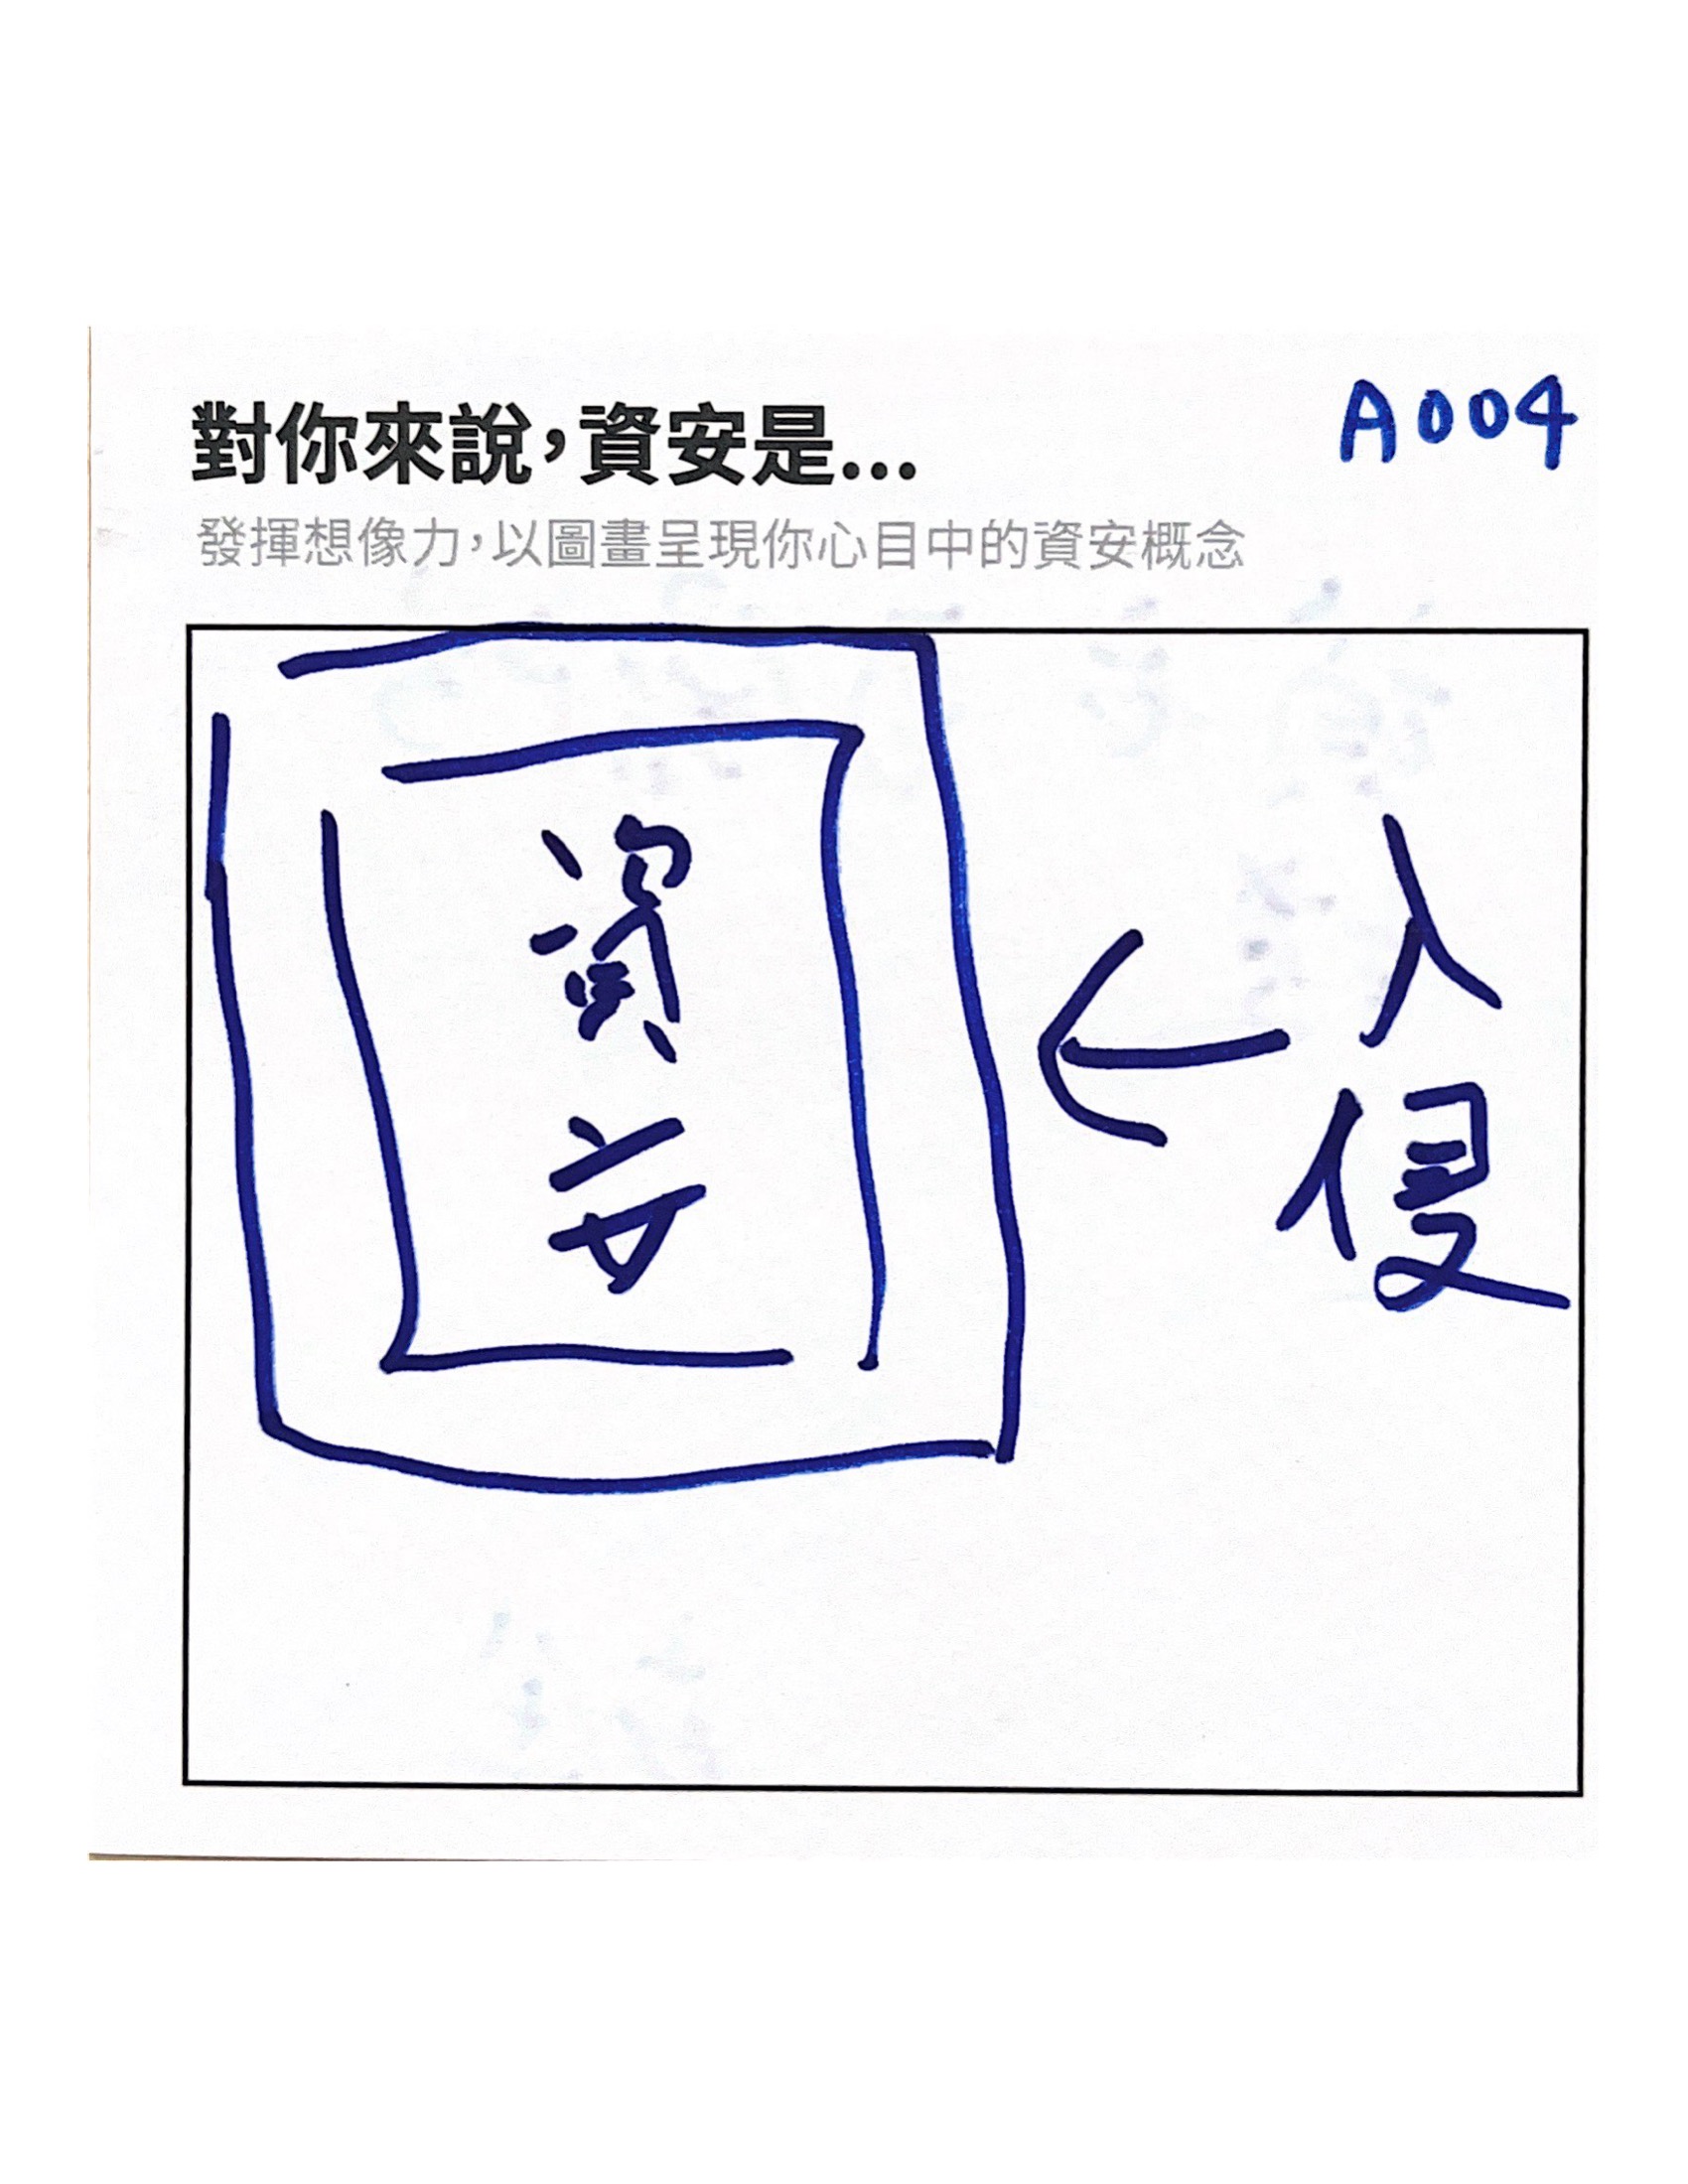 對你來說，資安是...
A004
發揮想像力，以圖畫呈現你心目中的資安概念
資安
入侵